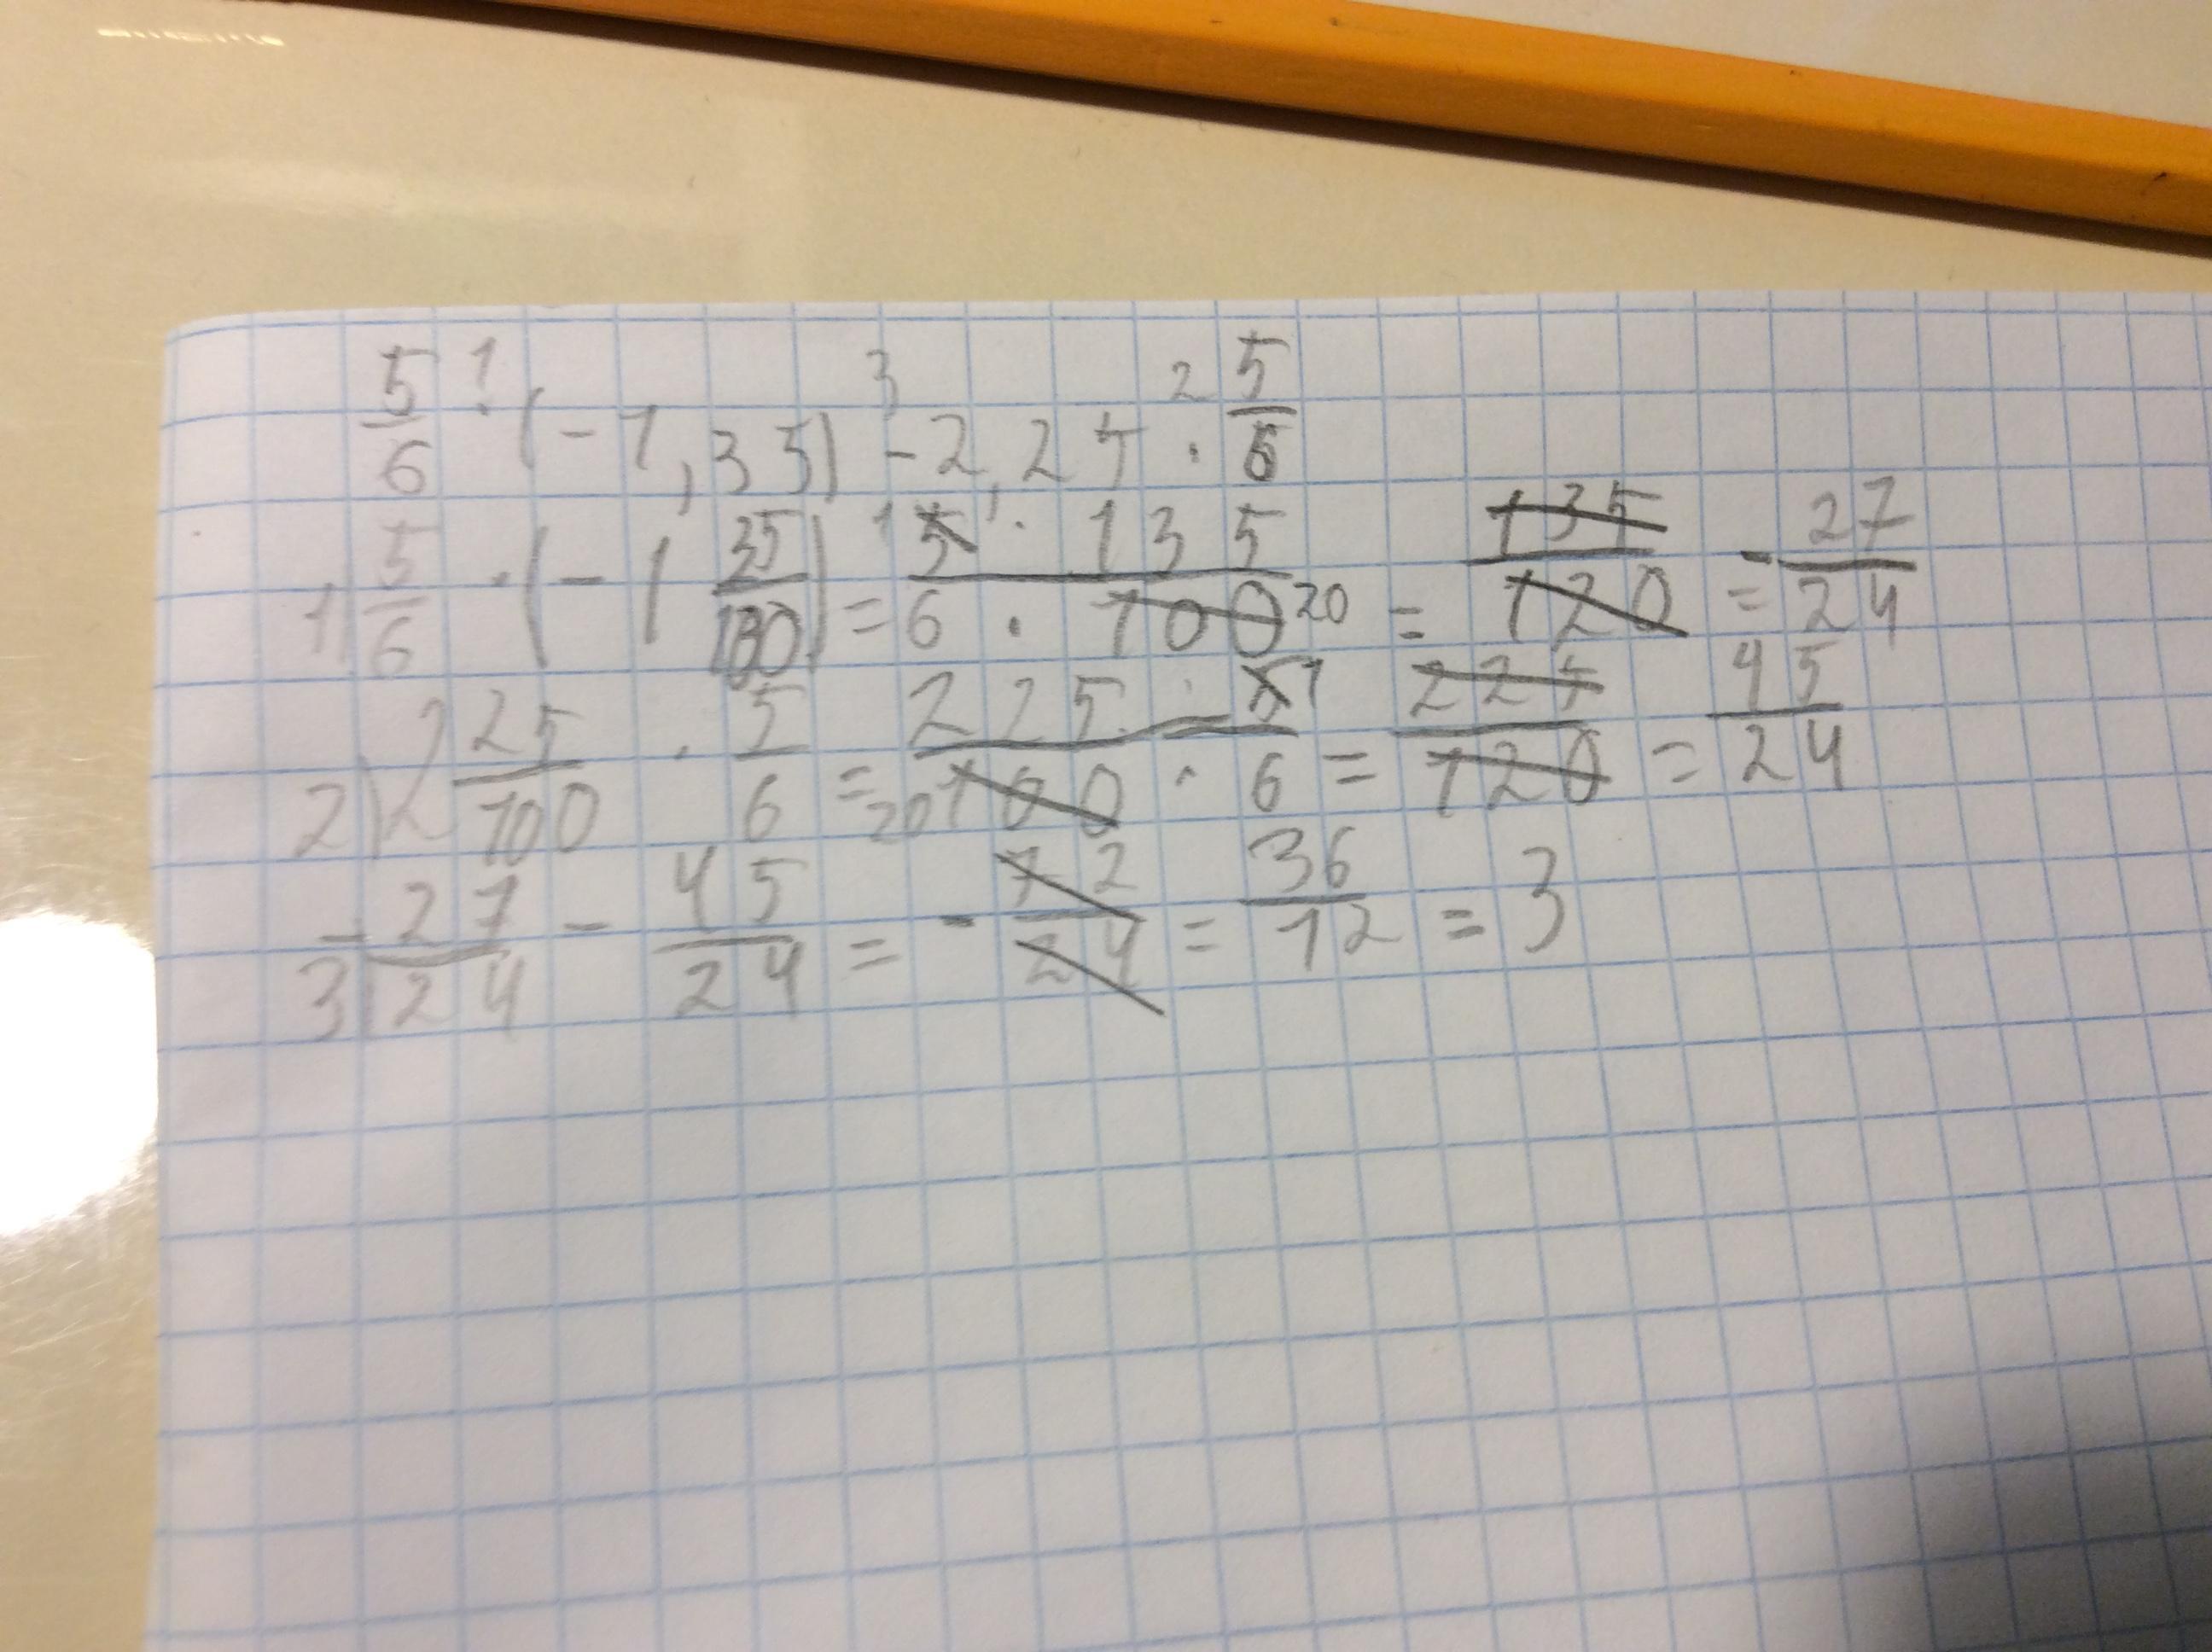 5/6 · (-1,35) - 2,25 · 5/6
1) 5/6 · (-1 35/100) = 5 · 135 / 6 · 100 20 = 135/120 = - 27/24
2) 2 25/100 · 5/6 = 225 · 5 1 / 20 100 · 6 = 225/120 = 45/24
3) - 27/24 - 45/24 = - 72/24 = 36/12 = 3